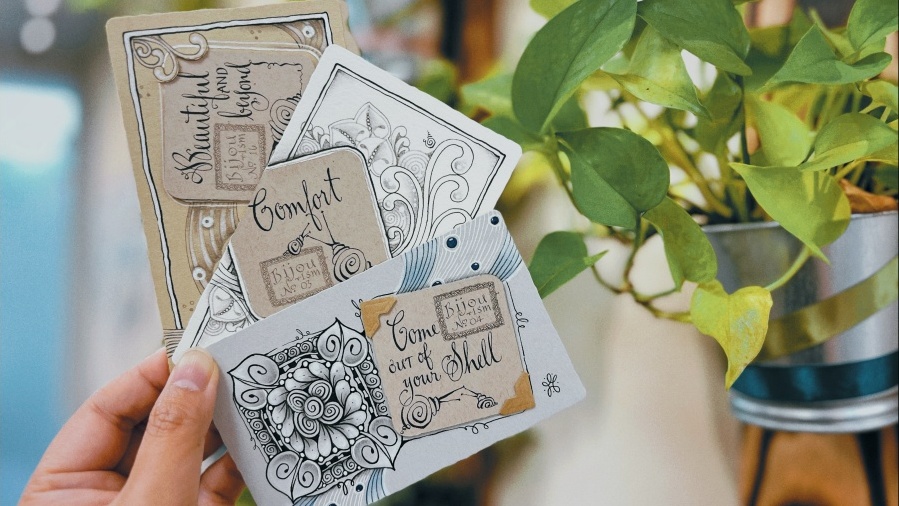 Beautiful
LAND
beyond
Bijou
+ism
Nº 16
Comfort
Bijou
+ism
Nº 05
Come
OUT of
your Shell
Bijou
+ism
Nº 04